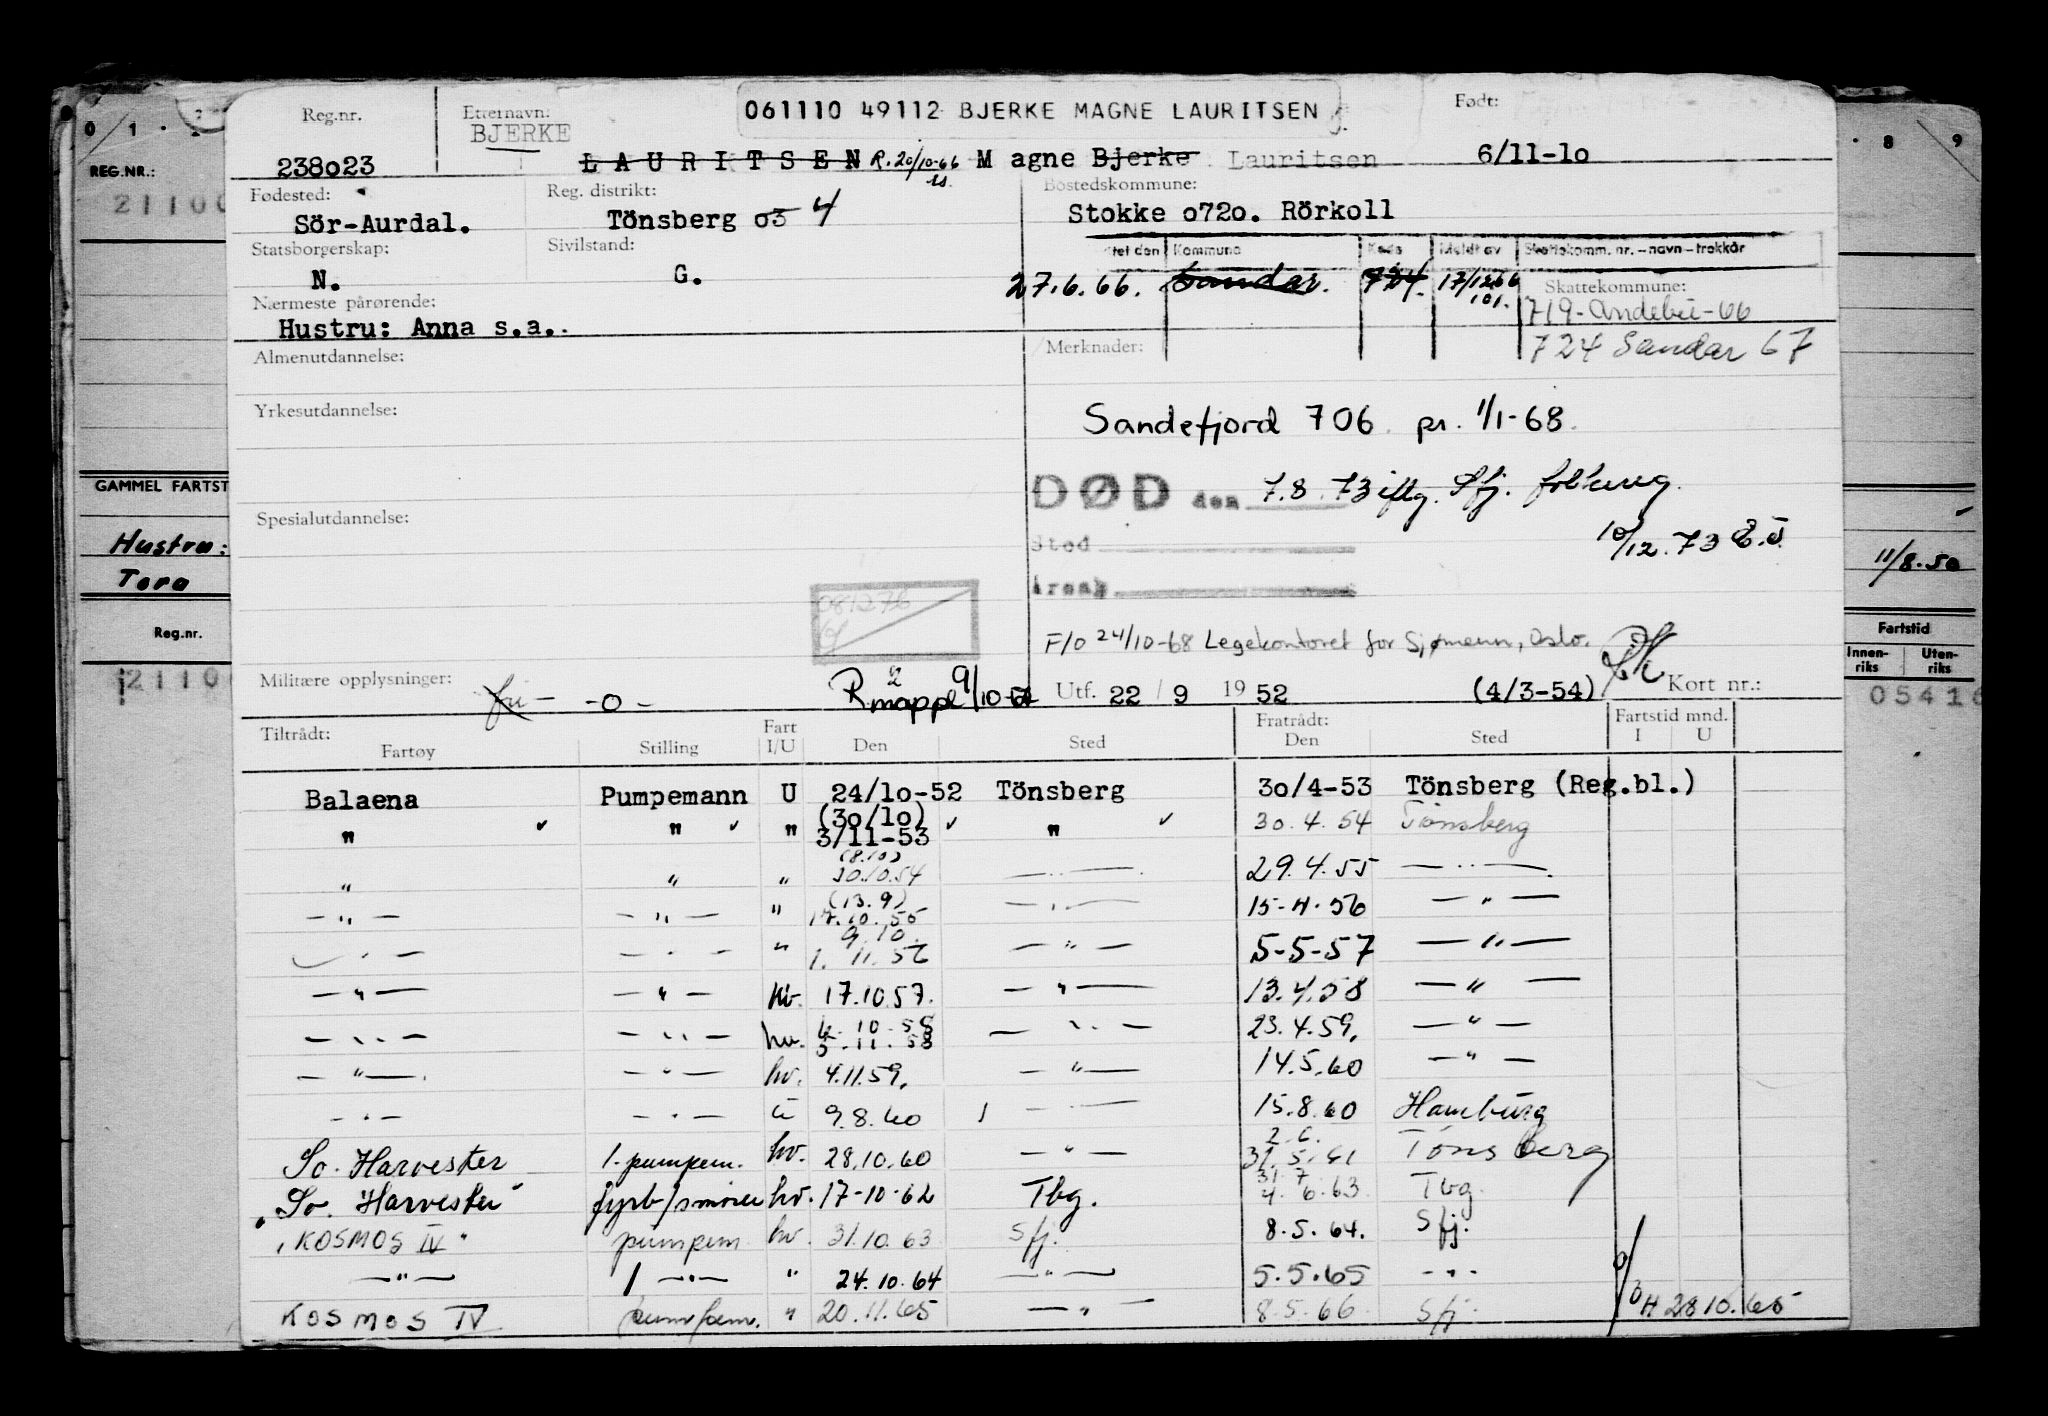 Reg.nr. Etternavn: 061110 49112 BJERKE MAGNE LAURITSEN Født:
BJERKE
238o23 L A U R I T S E N R. 20/10-66 M agne Bjerke Lauritsen 6/11-1o
Fødested: Reg. distrikt: Bostedskommune:
Sör-Aurdal. Tönsberg o3 4 Stokke o72o. Rörkoll
Statsborgerskap: Sivilstand: Kommune Kode Meldt av Skattekomm. nr.-navn-trekkår
N. G. 27.6.66. Sandar. 724. 17/1266
Skattekommune:
Nærmeste pårørende: 719-Andebu-66
Hustru: Anna s.a.
724 Sandar 67
Almenutdannelse: Merknader:
Yrkesutdannelse: Sandefjord 706 pr. 1/1-68.
DØD den 7.8.73 iflg. Sfj.
Spesialutdannelse:
Sted 10/12.73 E.J.
Årsak
081276
F/O 24/10-68 Legekontoret for Sjømenn, Oslo.
Militære opplysninger: fri- -o- R mappe 2 9/10- Utf. 22 / 9 19 52 (4/3-54) Kort nr.:
Tiltrådt: Fratrådt: Fartstid mnd.
Fartøy Stilling Fart I/U Den Sted Den Sted I U
Balaena Pumpemann U 24/1o-52 Tönsberg 3o/4-53 Tönsberg (Reg.bl.)
(3o/1o)
" " " 3/11-53 " 30.4.54 Tönsberg
(8.10)
" " " 30.10.54 -"- 29.4.55 -"-
(13.9)
-"- -"- " 17.10.55 -"- 15-4-56 -"-
9.10.
-"- -"- " 1.11.56 -"- 5-5-57 -"-
-"- -"- hv. 17.10.57. -"- 13.4.58 -"-
6.10.58
-"- -"- hv. 5.11.58 -"- 23.4.59. -"-
-"- -"- hv. 4.11.59. -"- 14.5.60 -"-
-"- -"- u 9.8.60 -"- 15.8.60 Hamburg
2.6.
So. Harvester 1. pumpem. hv. 28.10.60 -"- 31.5.61 Tönsberg
31.7
"So. Harvester" fyrb/smører hv. 17-10-62 Tbg. 4.6.63 Tbg.
"KOSMOS IV" pumpem hv. 31.10.63 Sfj. 8.5.64. Sfj.
-"- 1 -"- " 24.10.64 -"- 5.5.65 -"-
KOSMOS IV pumpem. " 20.11.65 -"- 8.5.66 Sfj. H 28.10.65
REG.NR.:
GAMMEL FARTST
Hustru:
Tora
Reg.nr.
8 9
11/8.50
Fartstid
Innen-riks Uten-riks
05416